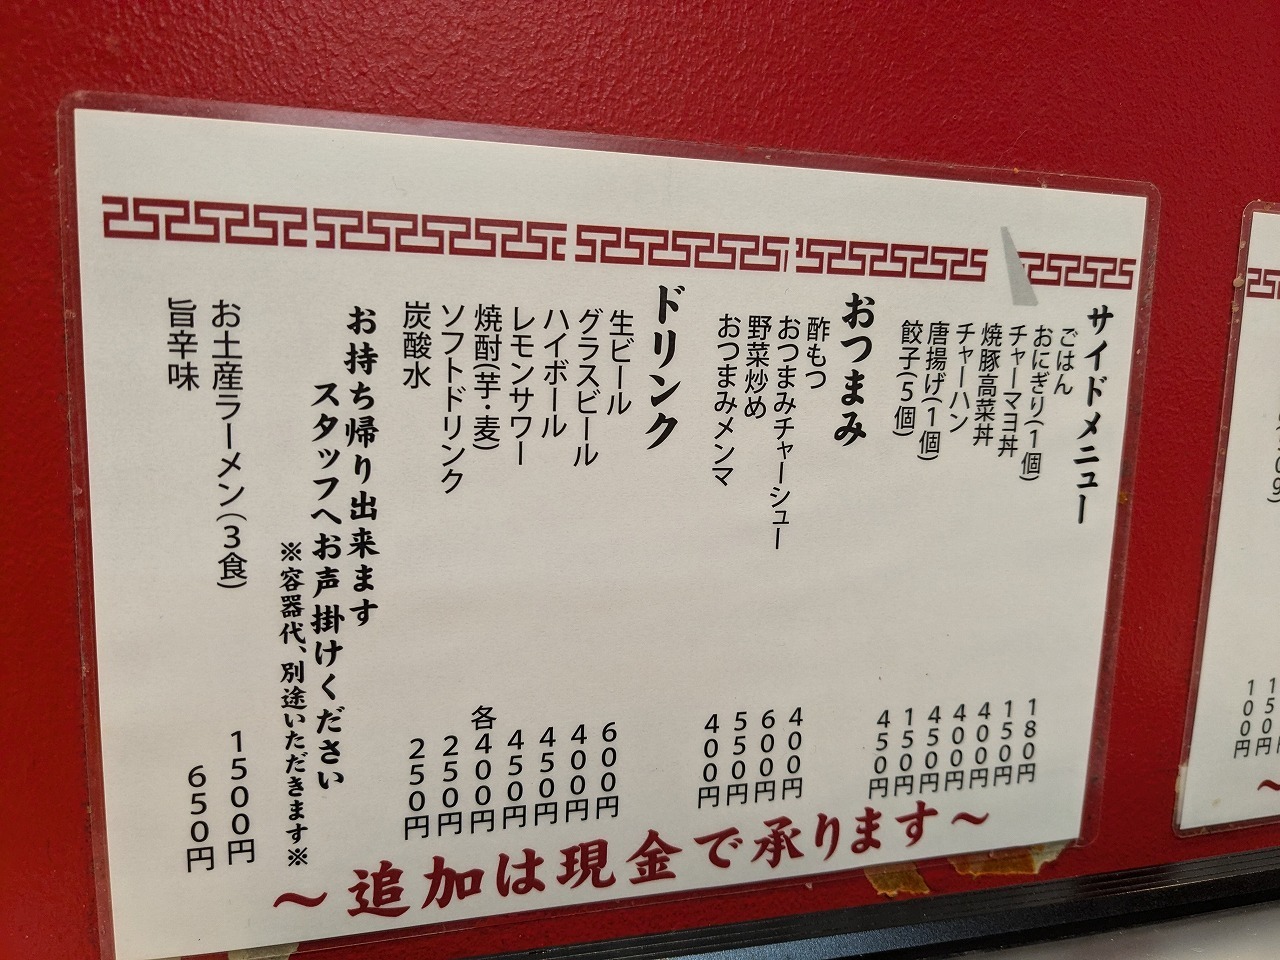 サイドメニュー
ごはん 180円
おにぎり(1個) 150円
チャーマヨ丼 400円
焼豚高菜丼 400円
チャーハン 450円
唐揚げ(1個) 150円
餃子(5個) 450円
おつまみ
酢もつ 400円
おつまみチャーシュー 600円
野菜炒め 550円
おつまみメンマ 400円
ドリンク
生ビール 600円
グラスビール 400円
ハイボール 450円
レモンサワー 450円
焼酎(芋・麦) 各400円
ソフトドリンク 250円
炭酸水 250円
お持ち帰り出来ます
スタッフへお声掛けください
※容器代、別途いただきます※
お土産ラーメン(3食) 1500円
旨辛味 650円
～追加は現金で承ります～
150円
100円